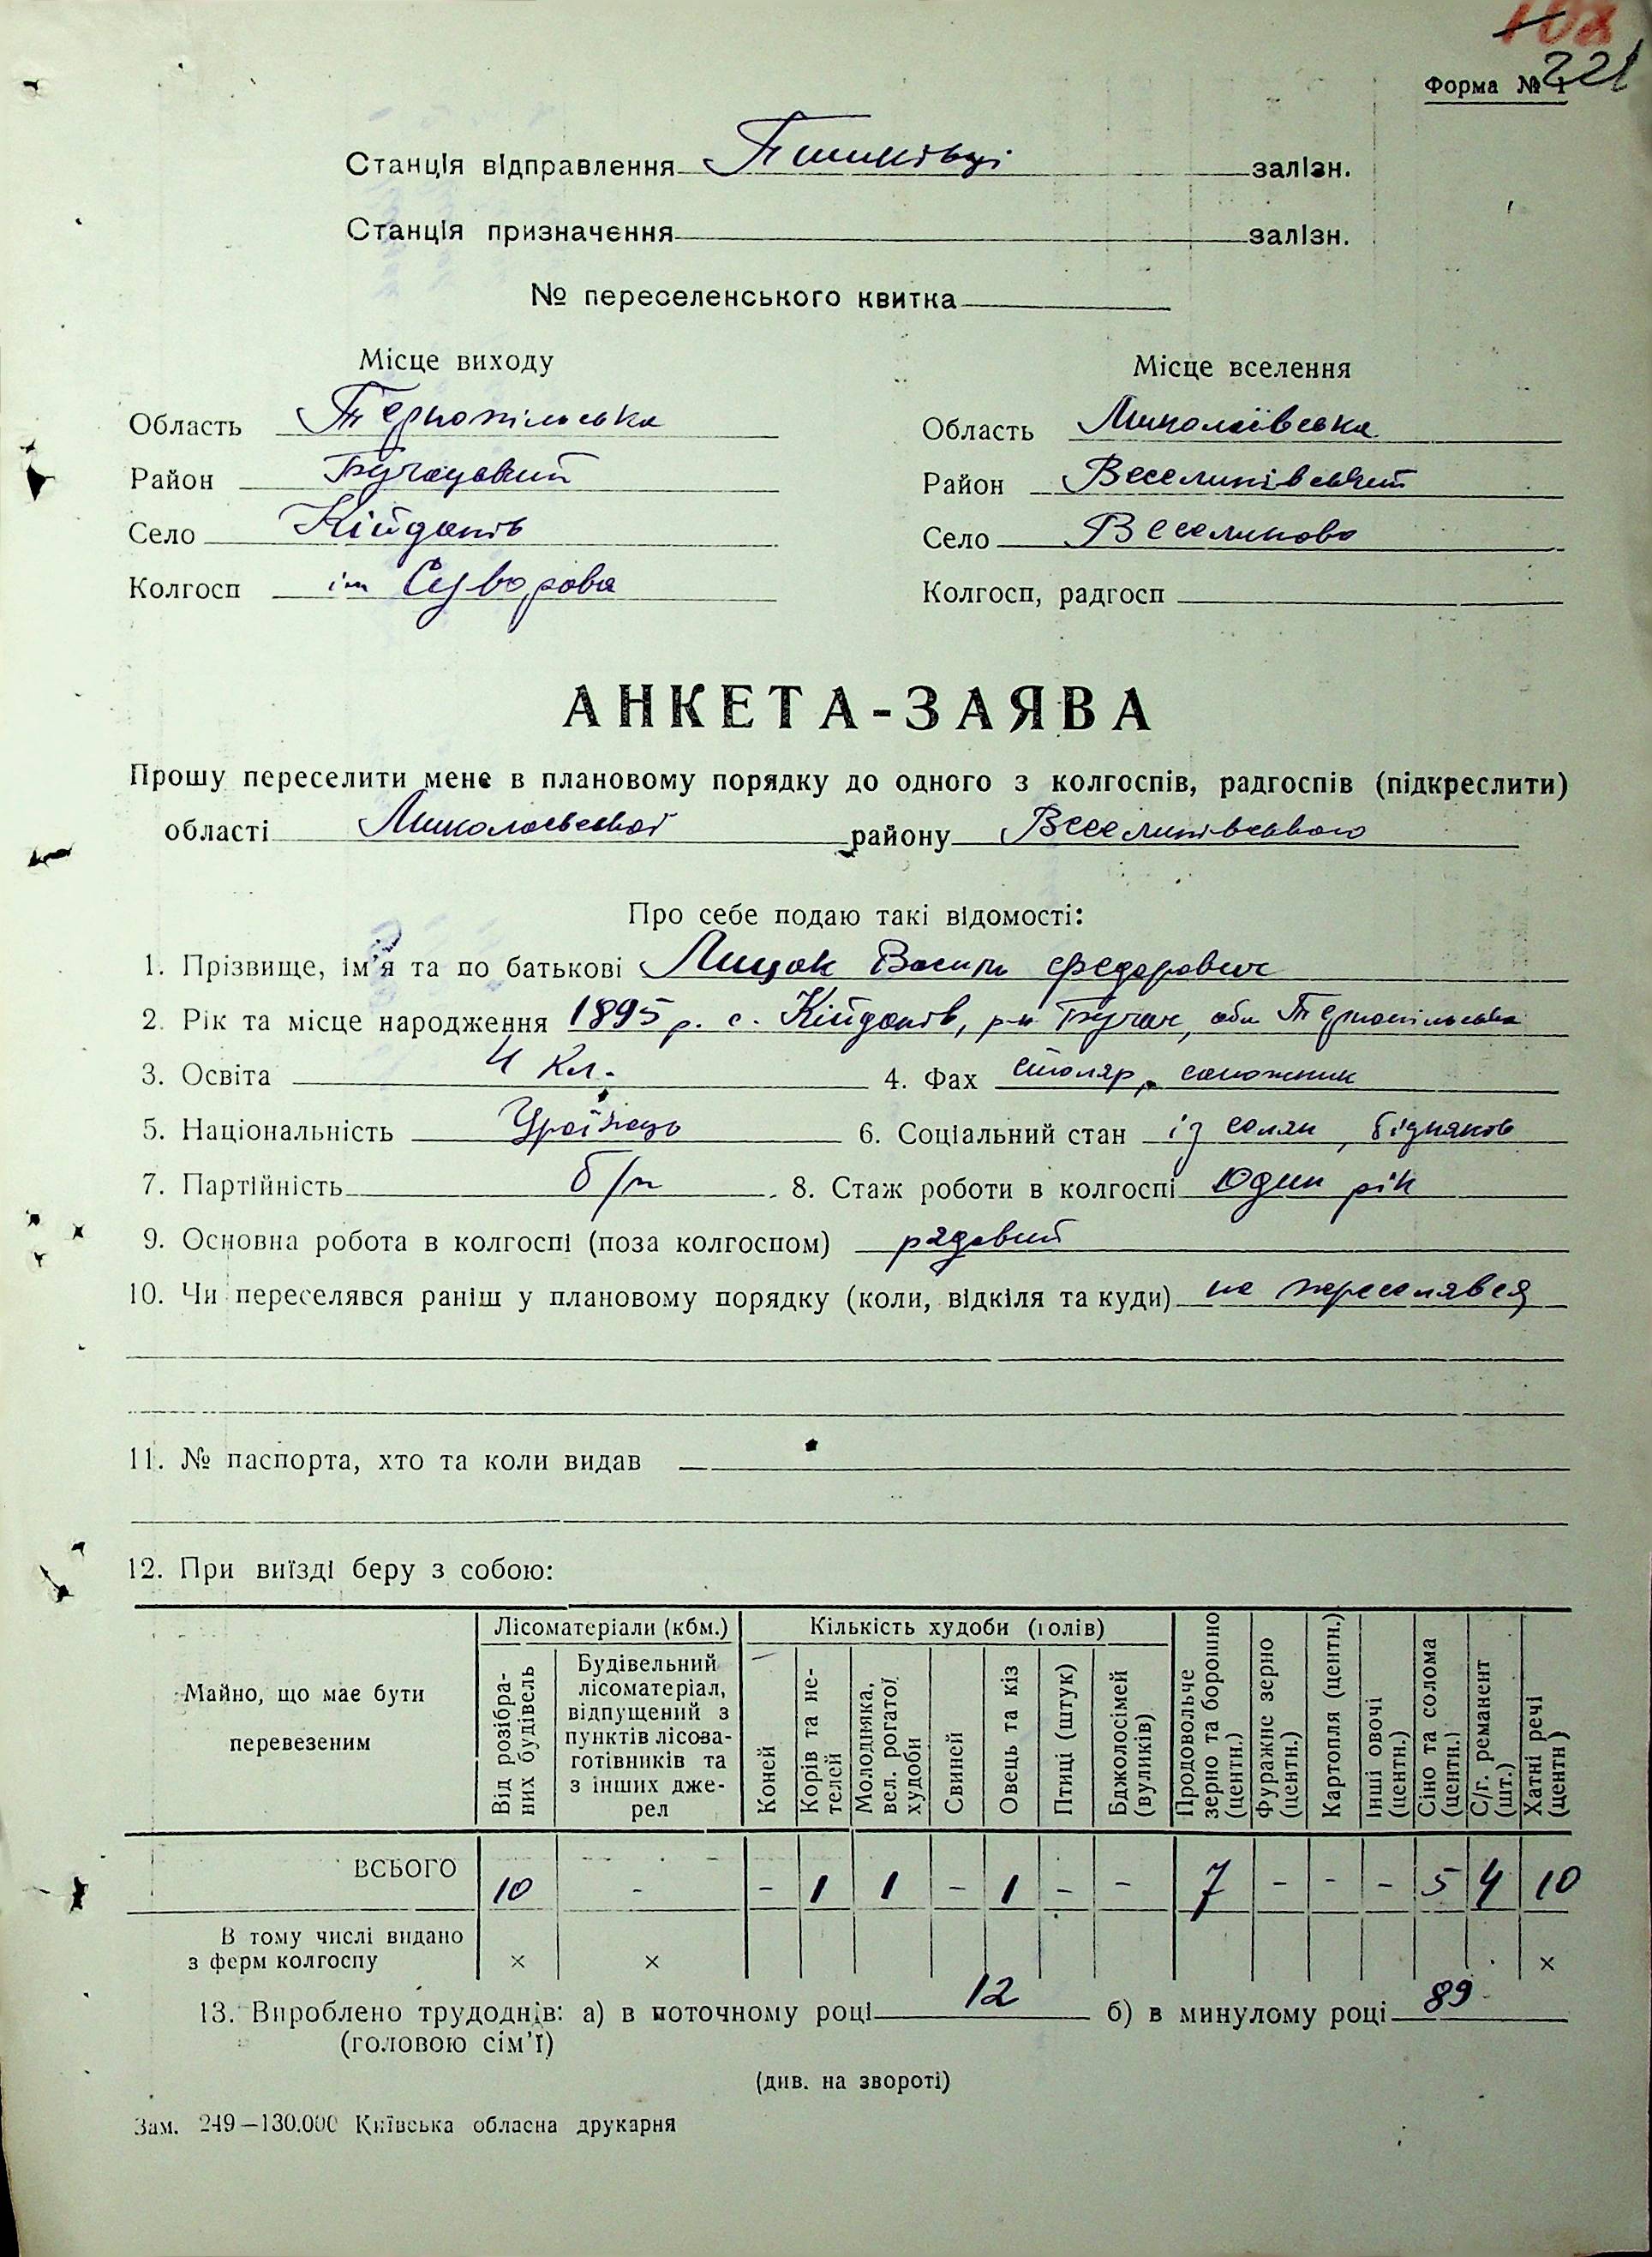 102
221
Форма № 1
Станція відправлення Пишківці залізн.
Станція призначення залізн.
№ переселенського квитка
Місце виходу Місце вселення
Область Тернопільська Область Миколаївська
Район Бучацький Район Веселинівський
Село Кійданів Село Веселиново
Колгосп ім Суворова Колгосп, радгосп
АНКЕТА-ЗАЯВА
Прошу переселити мене в плановому порядку до одного з колгоспів, радгоспів (підкреслити)
області Миколаєвської району Веселинівського
Про себе подаю такі відомості:
1. Прізвище, ім'я та по батькові Лицак Василь Федорович
2. Рік та місце народження 1895 р. с. Кійданів, р-н Бучач, обл Тернопільська
3. Освіта 4 кл. 4. Фах столяр, сапожник
5. Національність Українець 6. Соціальний стан із селян, бідняків
7. Партійність б/п 8. Стаж роботи в колгоспі Один рік
9. Основна робота в колгоспі (поза колгоспом) рядовий
10. Чи переселявся раніш у плановому порядку (коли, відкіля та куди) не переселявся
11. № паспорта, хто та коли видав
12. При виїзді беру з собою:
Майно, що має бути перевезеним
Лісоматеріали (кбм.)
Від розібраних будівель
Будівельний лісоматеріал, відпущений з пунктів лісозаготівників та з інших джерел
Кількість худоби (голів)
Коней
Корів та нетелей
Молодняка, вел. рогатої худоби
Свиней
Овець та кіз
Птиці (штук)
Бджолосімей (вуликів)
Продовольче зерно та борошно (центн.)
Фуражне зерно (центн.)
Картопля (центн.)
Інші овочі (центн.)
Сіно та солома (центн.)
С/г. реманент (шт.)
Хатні речі (центн)
ВСЬОГО 10 - - 1 1 - 1 - - 7 - - - 5 4 10
В тому числі видано з ферм колгоспу × × ×
13. Вироблено трудоднів: а) в поточному році 12 б) в минулому році 89
(головою сім'ї)
(див. на звороті)
Зам. 249—130.000 Київська обласна друкарня